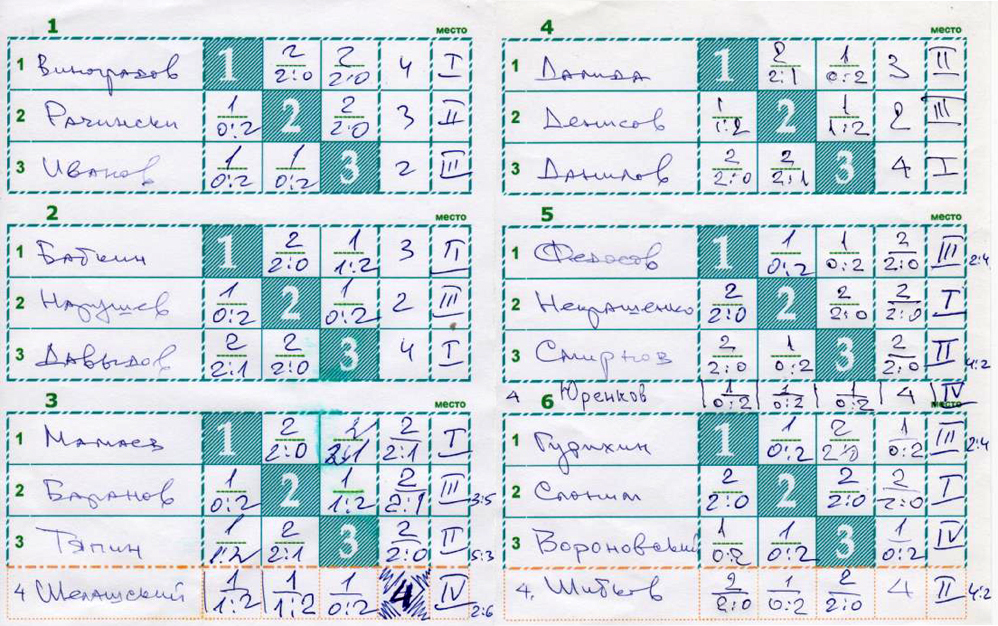 1
место
1 Виноградов 1 2 2:0 2 2:0 4 I
2 Рачински 1 0:2 2 2 2:0 3 II
3 Иванов 1 0:2 1 0:2 3 2 III
2
место
1 Баткин 1 2 2:0 1 1:2 3 II
2 Нарушев 1 0:2 2 1 0:2 2 III
3 Давыдов 2 2:1 2 2:0 3 4 I
3
место
1 Мамаев 1 2 2:0 2 2:1 2 2:1 I
2 Баранов 1 0:2 2 1 1:2 2 2:1 III 3:5
3 Тяпин 1 1:2 2 2:1 3 2 2:0 II 5:3
4 Шелашский 1 1:2 1 1:2 1 0:2 4 IV 2:6
4
место
1 Далида 1 2 2:1 1 0:2 3 II
2 Денисов 1 1:2 2 1 1:2 2 III
3 Данилов 2 2:0 2 2:1 3 4 I
5
место
1 Федосов 1 1 0:2 1 0:2 2 2:0 III 2:4
2 Некрашенко 2 2:0 2 2 2:0 2 2:0 I
3 Смирнов 2 2:0 1 0:2 3 2 2:0 II 4:2
4 Юренков 1 0:2 1 0:2 1 0:2 4 IV
6
место
1 Гурихин 1 1 0:2 2 2:0 1 0:2 III 2:4
2 Слоним 2 2:0 2 2 2:0 2 2:0 I
3 Вороновский 1 0:2 1 0:2 3 1 0:2 IV
4. Шитков 2 2:0 1 0:2 2 2:0 4 II 4:2